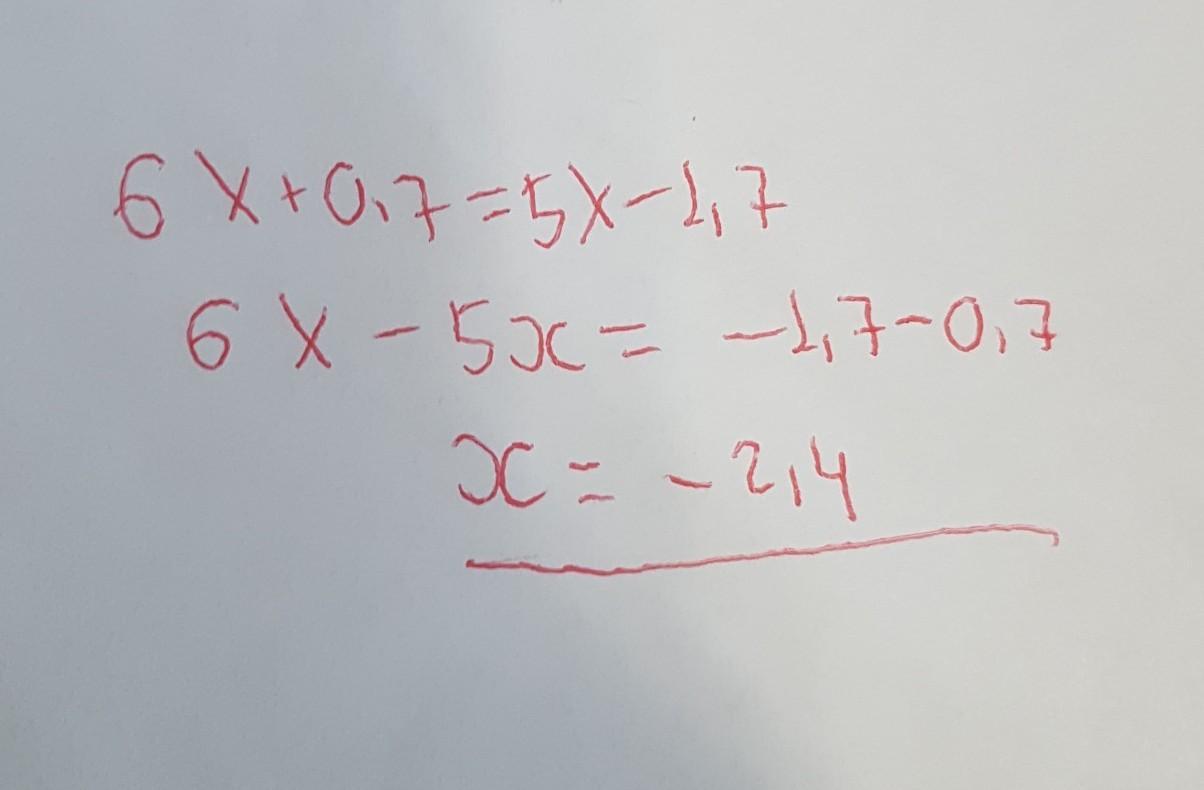 6x+0,7=5x-1,7
6x-5x= -1,7-0,7
x= -2,4